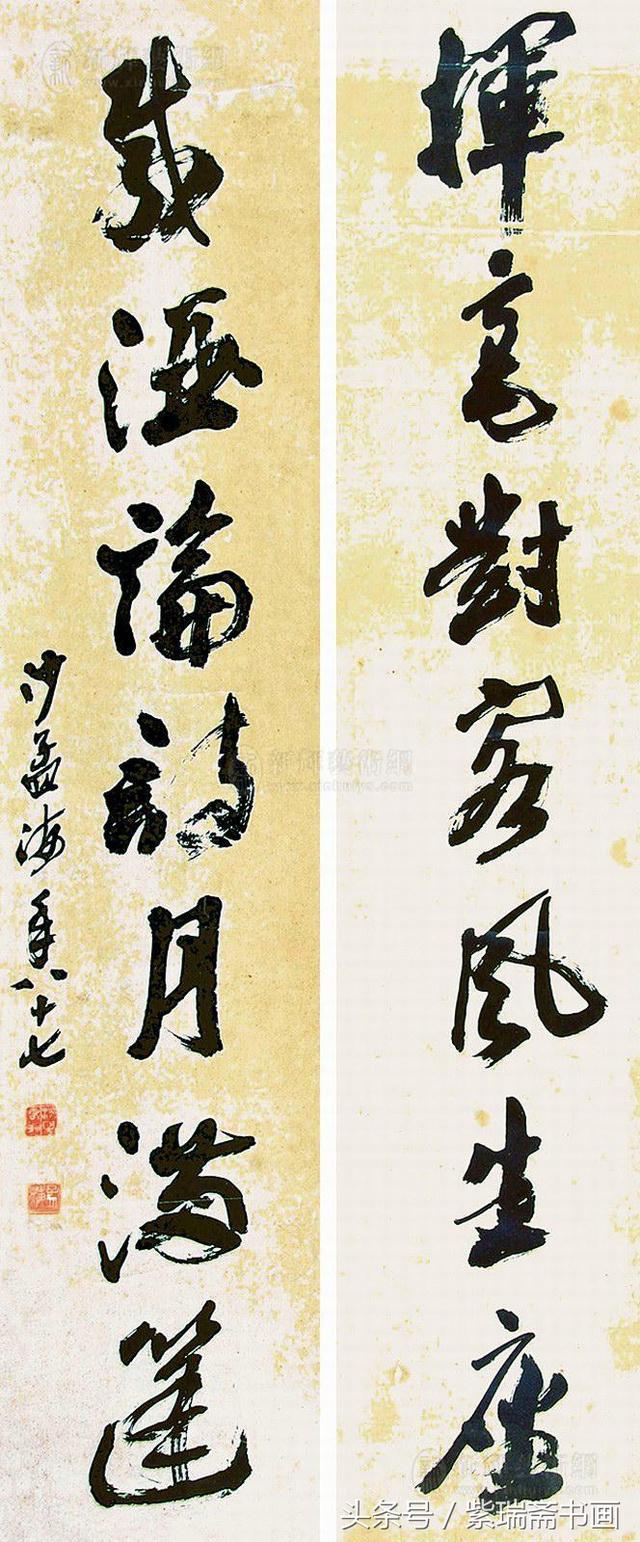 揮毫對客風生座
載酒論詩月滿篷
沙孟海年八十七
新浙藝術網
头条号 / 紫瑞斋书画